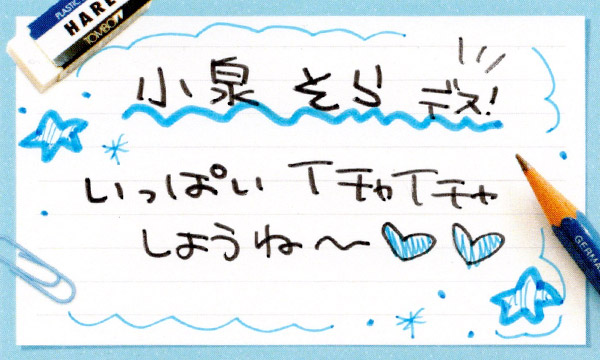 PLASTIC
HARD
TOMBOW
小泉 そら デス!
いっぱい イチャイチャ
しようね〜
GERMANY